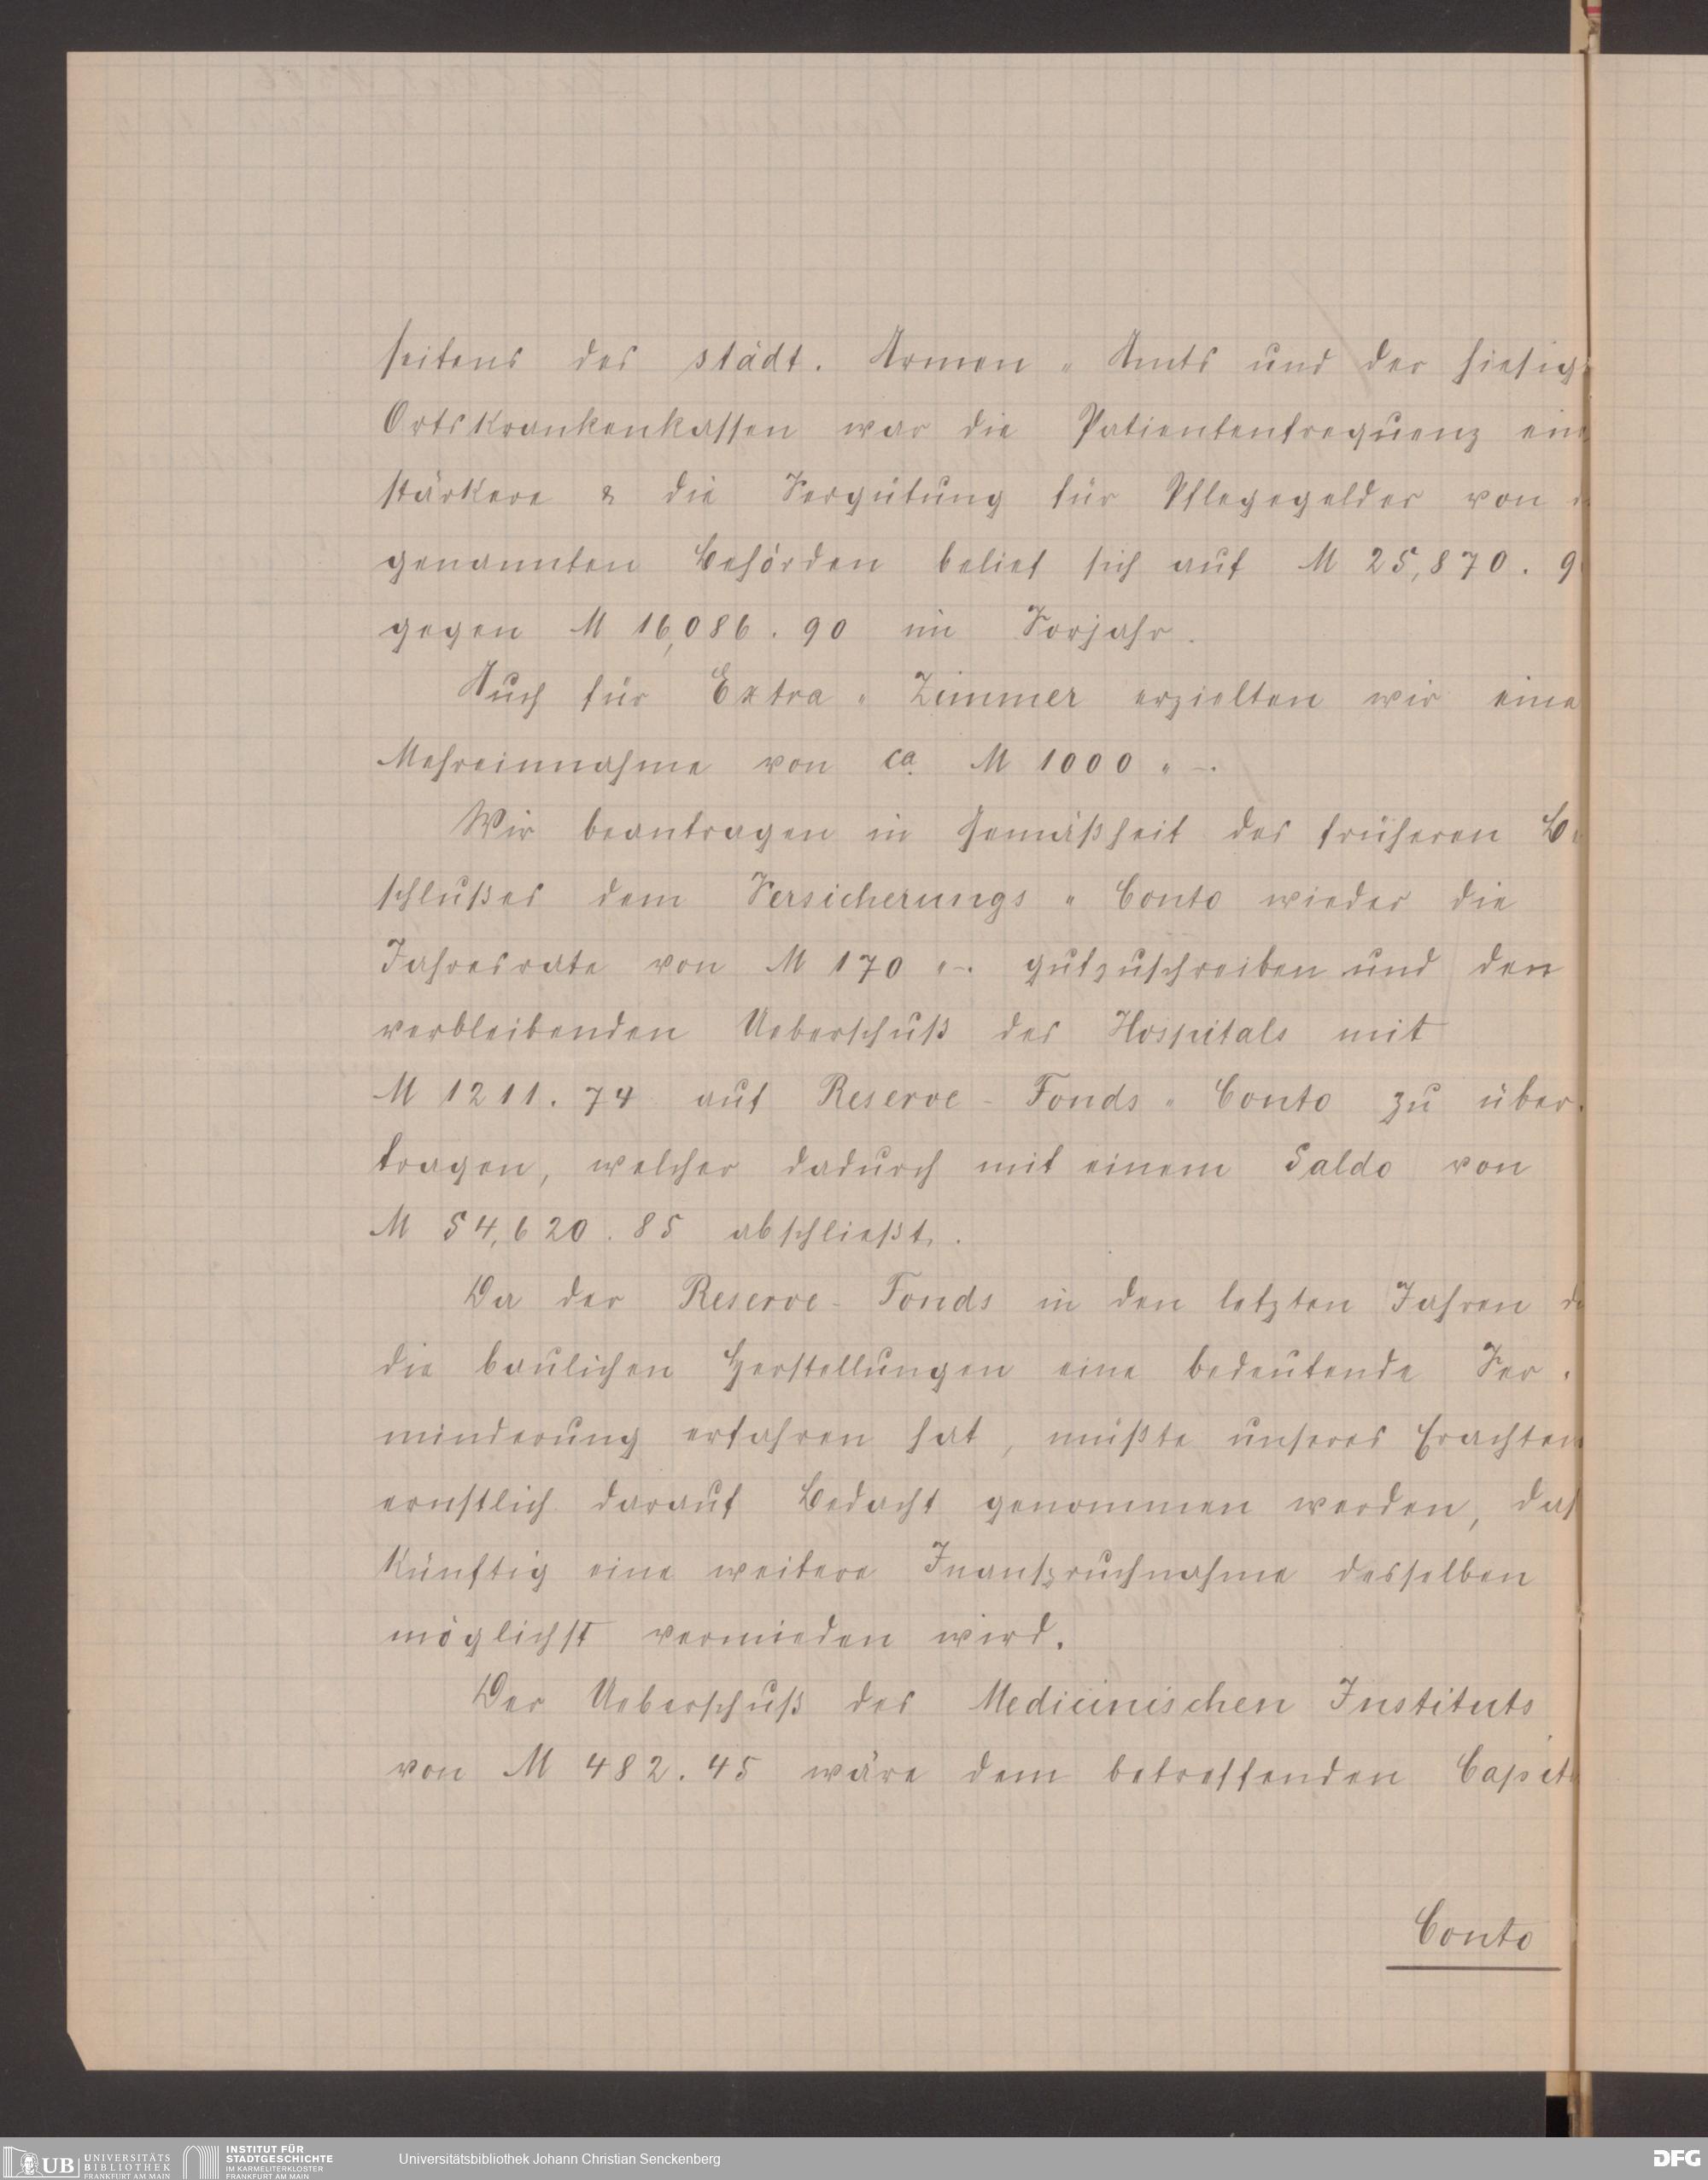 seitens des städt. Armen-Amts und der hiesig
Ortskrankenkassen war die Patientenfrequenz ein
stärkere & die Vergütung für Pflegegelder von
genannten Behörden belief sich auf M 25,870. 9
gegen M 16,086. 90 im Vorjahr.
Auch für Extra-Zimmer erzielten wir eine
Mehreinnahme von ca. M 1000 „ –.
Wir beantragen in Gemäßheit des früheren Be
schlußes dem Versicherungs-Conto wieder die
Jahresrate von M 170 „–. gutzuschreiben und den
verbleibenden Ueberschuß des Hospitals mit
M 1211. 74 auf Reserve-Fonds-Conto zu über-
tragen, welcher dadurch mit einem Saldo von
M 54,620. 85 abschließt.
Da der Reserve-Fonds in den letzten Jahren d
die baulichen Herstellungen eine bedeutende Ver-
minderung erfahren hat, müßte unseres Erachten
ernstlich darauf Bedacht genommen werden, daß
künftig eine weitere Inanspruchnahme desselben
möglichst vermieden wird.
Der Ueberschuß des Medicinischen Instituts
von M 482. 45 wäre dem betreffenden Capit
Conto
UB UNIVERSITÄTS BIBLIOTHEK FRANKFURT AM MAIN
INSTITUT FÜR STADTGESCHICHTE IM KARMELITERKLOSTER FRANKFURT AM MAIN
Universitätsbibliothek Johann Christian Senckenberg
DFG